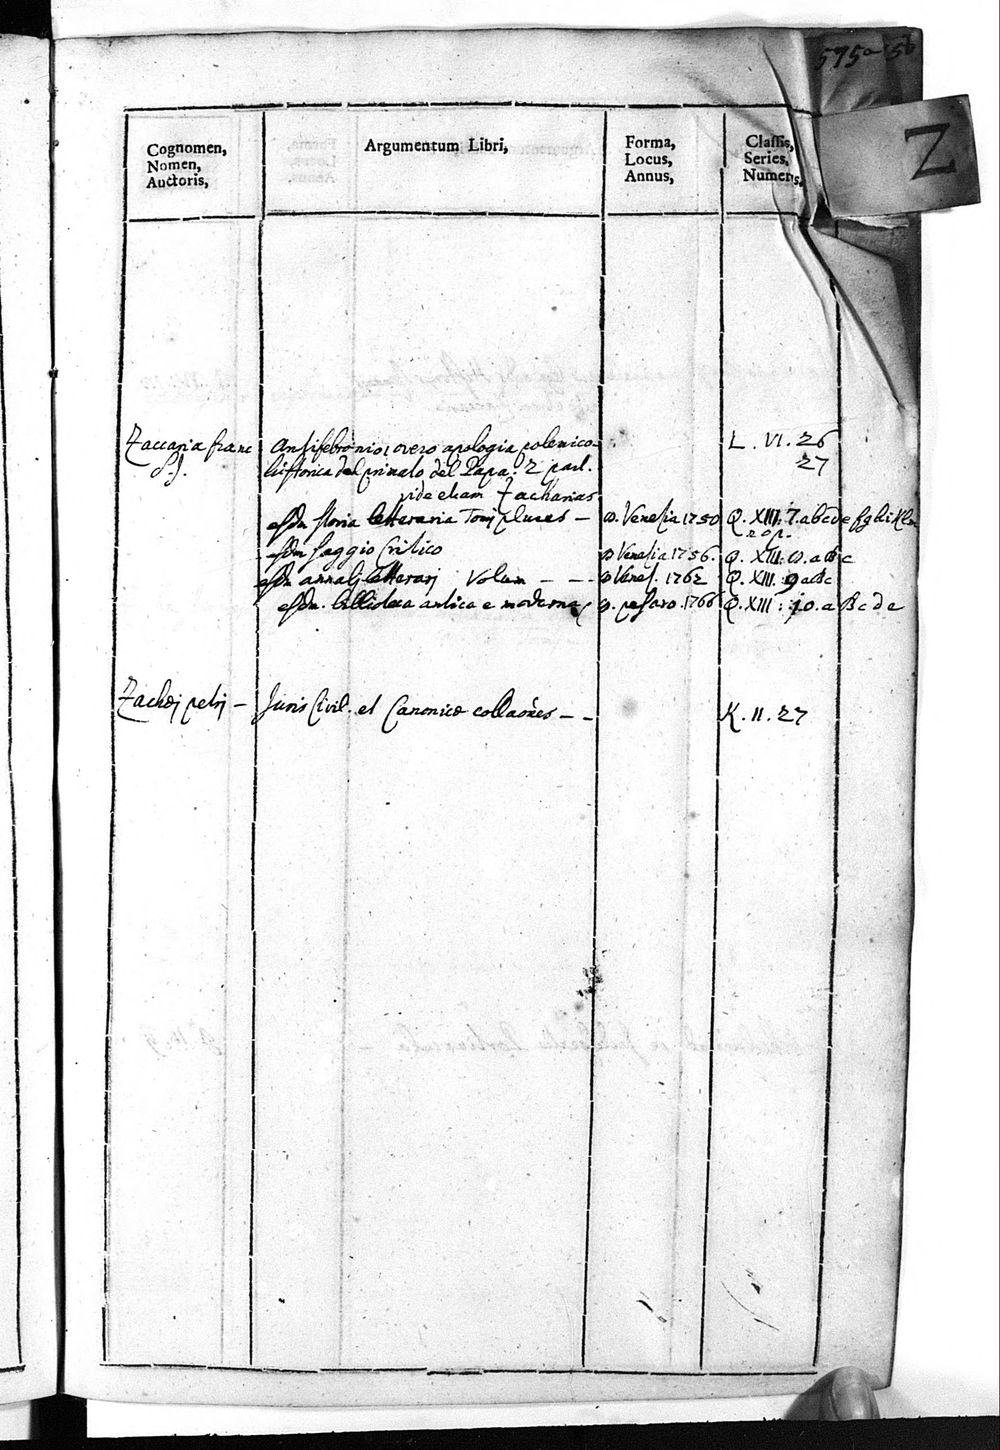 575a 5b
Z
Cognomen, Nomen, Auctoris,
Argumentum Libri,
Forma, Locus, Annus,
Classis, Series, Numerus,
Zaccaria franc Antifebronio, overo apologia polemico L. VI. 26
historica del primato del Papa. 2 part. 27
vide etiam Zacharias
storia letteraria Tomj plures — Venesia 1750 Q. XIII: 7. abcdefghiklm
nop.
saggio Critico Venesia 1756. Q. XIII: abc
annalj letterarj Volum — — Venes. 1762 Q. XIII. 9 abc
biblioteca antica e moderna pesaro. 1766 Q. XIII: 10. a B c d e
Zachej petrj — Juris Civil. et Canonice collaões — — K. II. 27